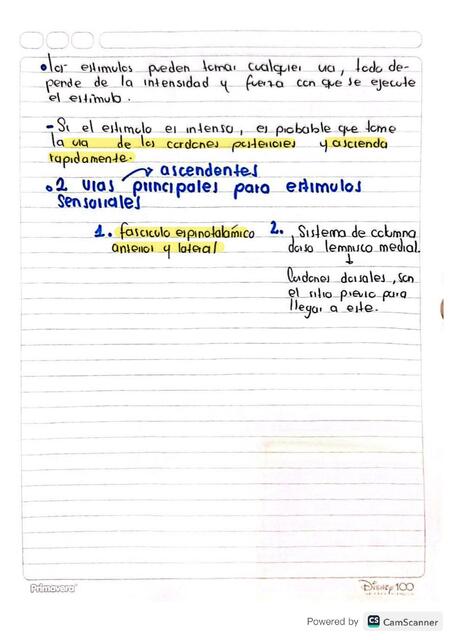 • los estimulos pueden tomar cualquier via, todo de-
pende de la intensidad y fuerza con que se ejecute
el estimulo.
- Si el estimulo es intenso, es probable que tome
la via de los cordones posteriores y ascienda
rapidamente.
→ ascendentes
• 2 vias principales para estimulos
sensoriales
1. fasciculo espinotalámico
anterior y lateral
2. Sistema de columna
dorso lemnisco medial.
↓
Cordones dorsales, son
el sitio previo para
llegar a este.
Primavera
Disney 100
Powered by CS CamScanner